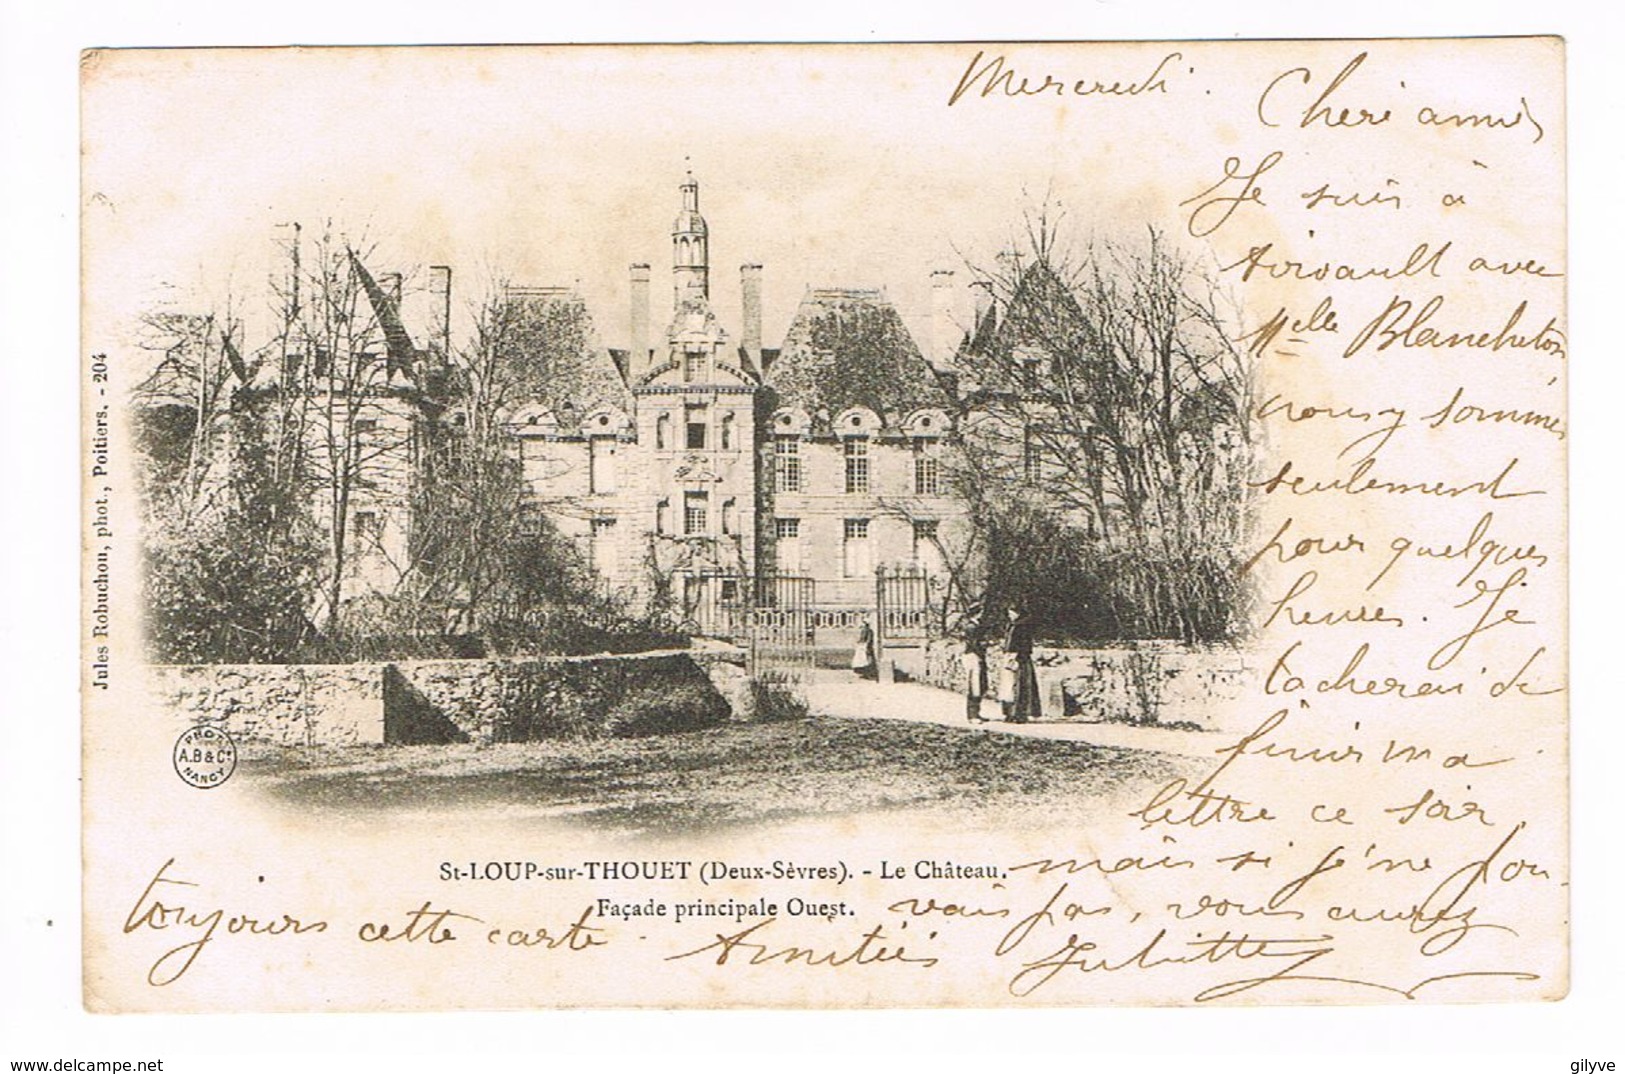 Mercredi.
Cheri amies
Je suis à
Airvault avec
Melle Blancheton
nous y sommes
seulement
pour quelques
heures. Je
tacherai de
finir ma
lettre ce soir
mais si j'ne pou-
vais pas, vous aurez
toujours cette carte.
Amitiés Juliette
St-LOUP-sur-THOUET (Deux-Sèvres). - Le Château.
Façade principale Ouest.
Jules Robuchon, phot., Poitiers. - 204
PHOT.
A.B & Cie
NANCY
https://www.delcampe.net
gilyve